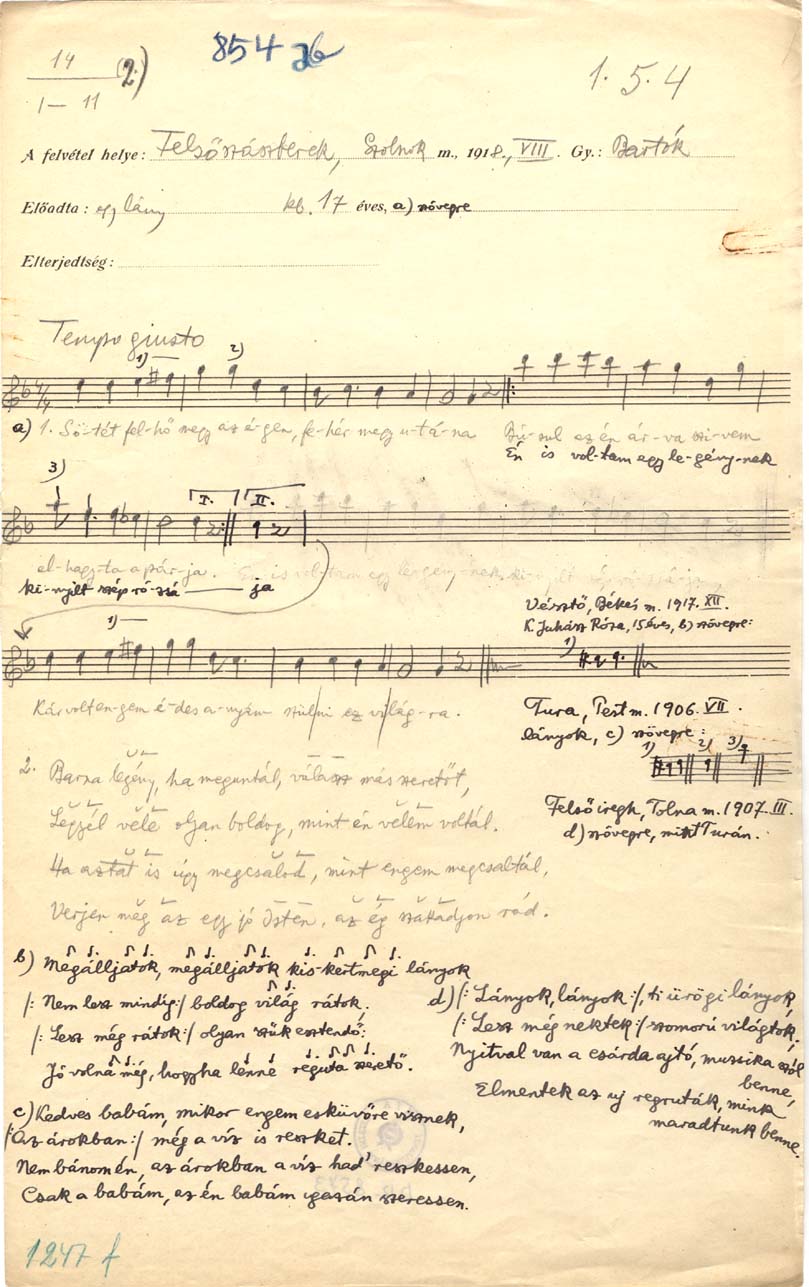 14
I – 11
(2.)
854 ab
1. 5. 4
A felvétel helye: Felsőszászberek, Szolnok m., 1918., VIII. Gy.: Bartók
Előadta: egy lány kb. 17 éves, a) szövegre
Elterjedtség:
Tempo giusto
1)
2)
a) 1. Sö-tét fel-hő megy az é-gen, fe-hér megy u-tá-na Bú-sul ez én ár-va szi-vem
Én is vol-tam egy le-gény-nek
3)
I. II.
el-hagy-ta a pár-ja.
ki-nyilt szép ró-zsá ja
1)
Kár volt en-gem é-des a-nyám szülni ez világ-ra.
Vésztő, Békés m. 1917. XII.
K. Juhász Róza, 15 éves, b) szövegre:
1)
Tura, Pest m. 1906. VII.
lányok, c) szövegre:
1) 2) 3)
Felsőiregh, Tolna m. 1907. III.
d) szövegre, mint Turán.
2. Barna legény, ha meguntál, válassz más szeretőt,
Légyél véle oljan boldog, mint én vélem voltál.
Ha aztat is úgy megcsalod, mint engem megcsaltál,
Verjen még az egy jó Isten, az ég szakadjon rád.
b) Megálljatok, megálljatok kis-kertmegi lányok
/: Nem lesz mindíg :/ boldog világ rátok.
/: Lesz még rátok :/ olyan szűk esztendő:
Jó volna még, hogyha lenne reguta szerető.
c) Kedves babám, mikor engem esküvőre visznek,
/: Az árokban :/ még a víz is reszket.
Nem bánom én, az árokban a víz had' reszkessen,
Csak a babám, az én babám igazán szeressen.
d) /: Lányok, lányok :/, ti ürögi lányok,
/: Lesz még nektek :/ szomorú világtok.
Nyitval van a csárda ajtó, muzsika szól
benne,
Elmentek az uj regruták, mink
maradtunk benne.
1247 f